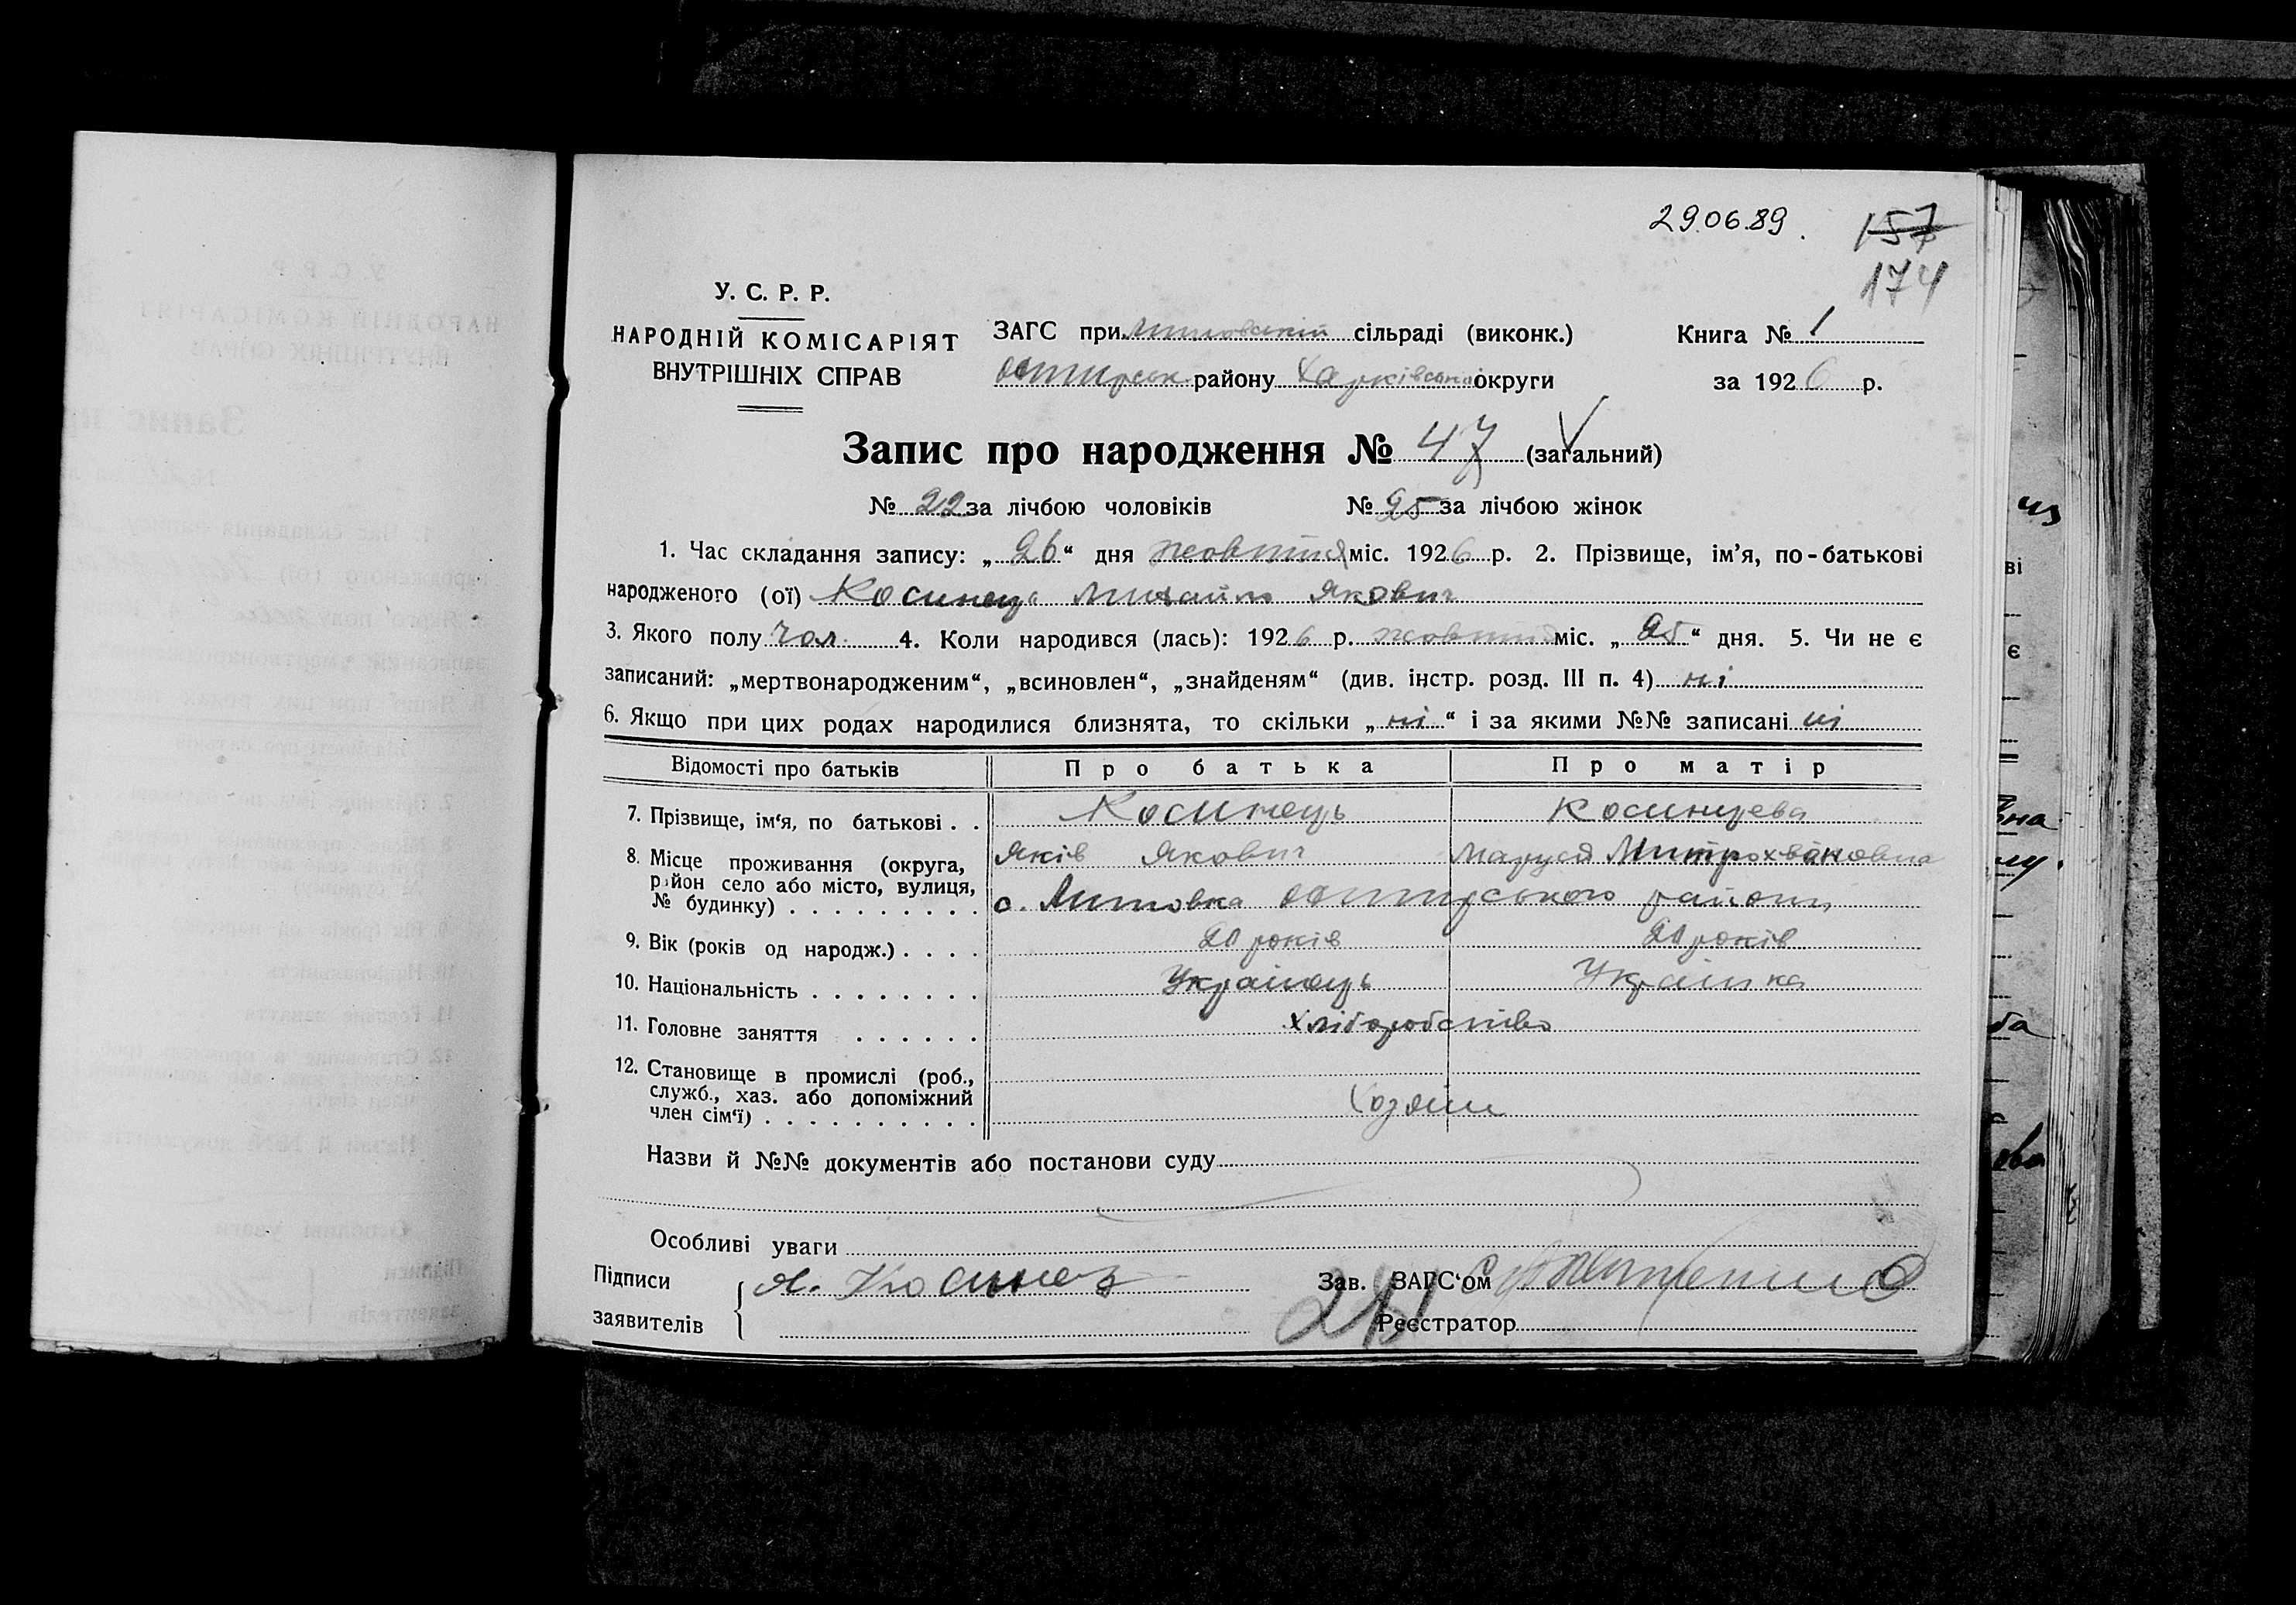 29.06.89.
157
174
У. С. Р. Р.
НАРОДНІЙ КОМІСАРІЯТ
ВНУТРІШНІХ СПРАВ
ЗАГС при сільраді (виконк.)
району Харківської округи
Книга № 1
за 1926 р.
Запис про народження № 47 (загальний)
№ 22 за лічбою чоловіків № 25 за лічбою жінок
1. Час складання запису: „ 26 “ дня жовтня міс. 1926 р. 2. Прізвище, ім’я, по-батькові
народженого (ої) Косинець Михайло Якович
3. Якого полу Чол. 4. Коли народився (лась): 1926 р. жовтня міс. „ 25 “ дня. 5. Чи не є
записаний: „мертвонародженим“, „всиновлен“, „знайденям“ (див. інстр. розд. III п. 4) ні
6. Якщо при цих родах народилися близнята, то скільки „ ні “ і за якими №№ записані ні
Відомості про батьків Про батька Про матір
7. Прізвище, ім‘я, по батькові . . Косинець Косинцева
Яків Якович Маруся Митрохвановна
8. Місце проживання (округа,
район село або місто, вулиця,
№ будинку) . . . . . . . . . с. Литовка району
9. Вік (років од народж.) . . . . 20 років 20 років
10. Національність . . . . . . . . Українець Українка
11. Головне заняття . . . . . . Хліборобство
12. Становище в промислі (роб.,
служб., хаз. або допоміжний
член сім‘ї) . . . . . . . . . . Хозяїн
Назви й №№ документів або постанови суду
Особливі уваги
Підписи
заявителів
Я. Косинец
Зав. ЗАГС‘ом
Реєстратор